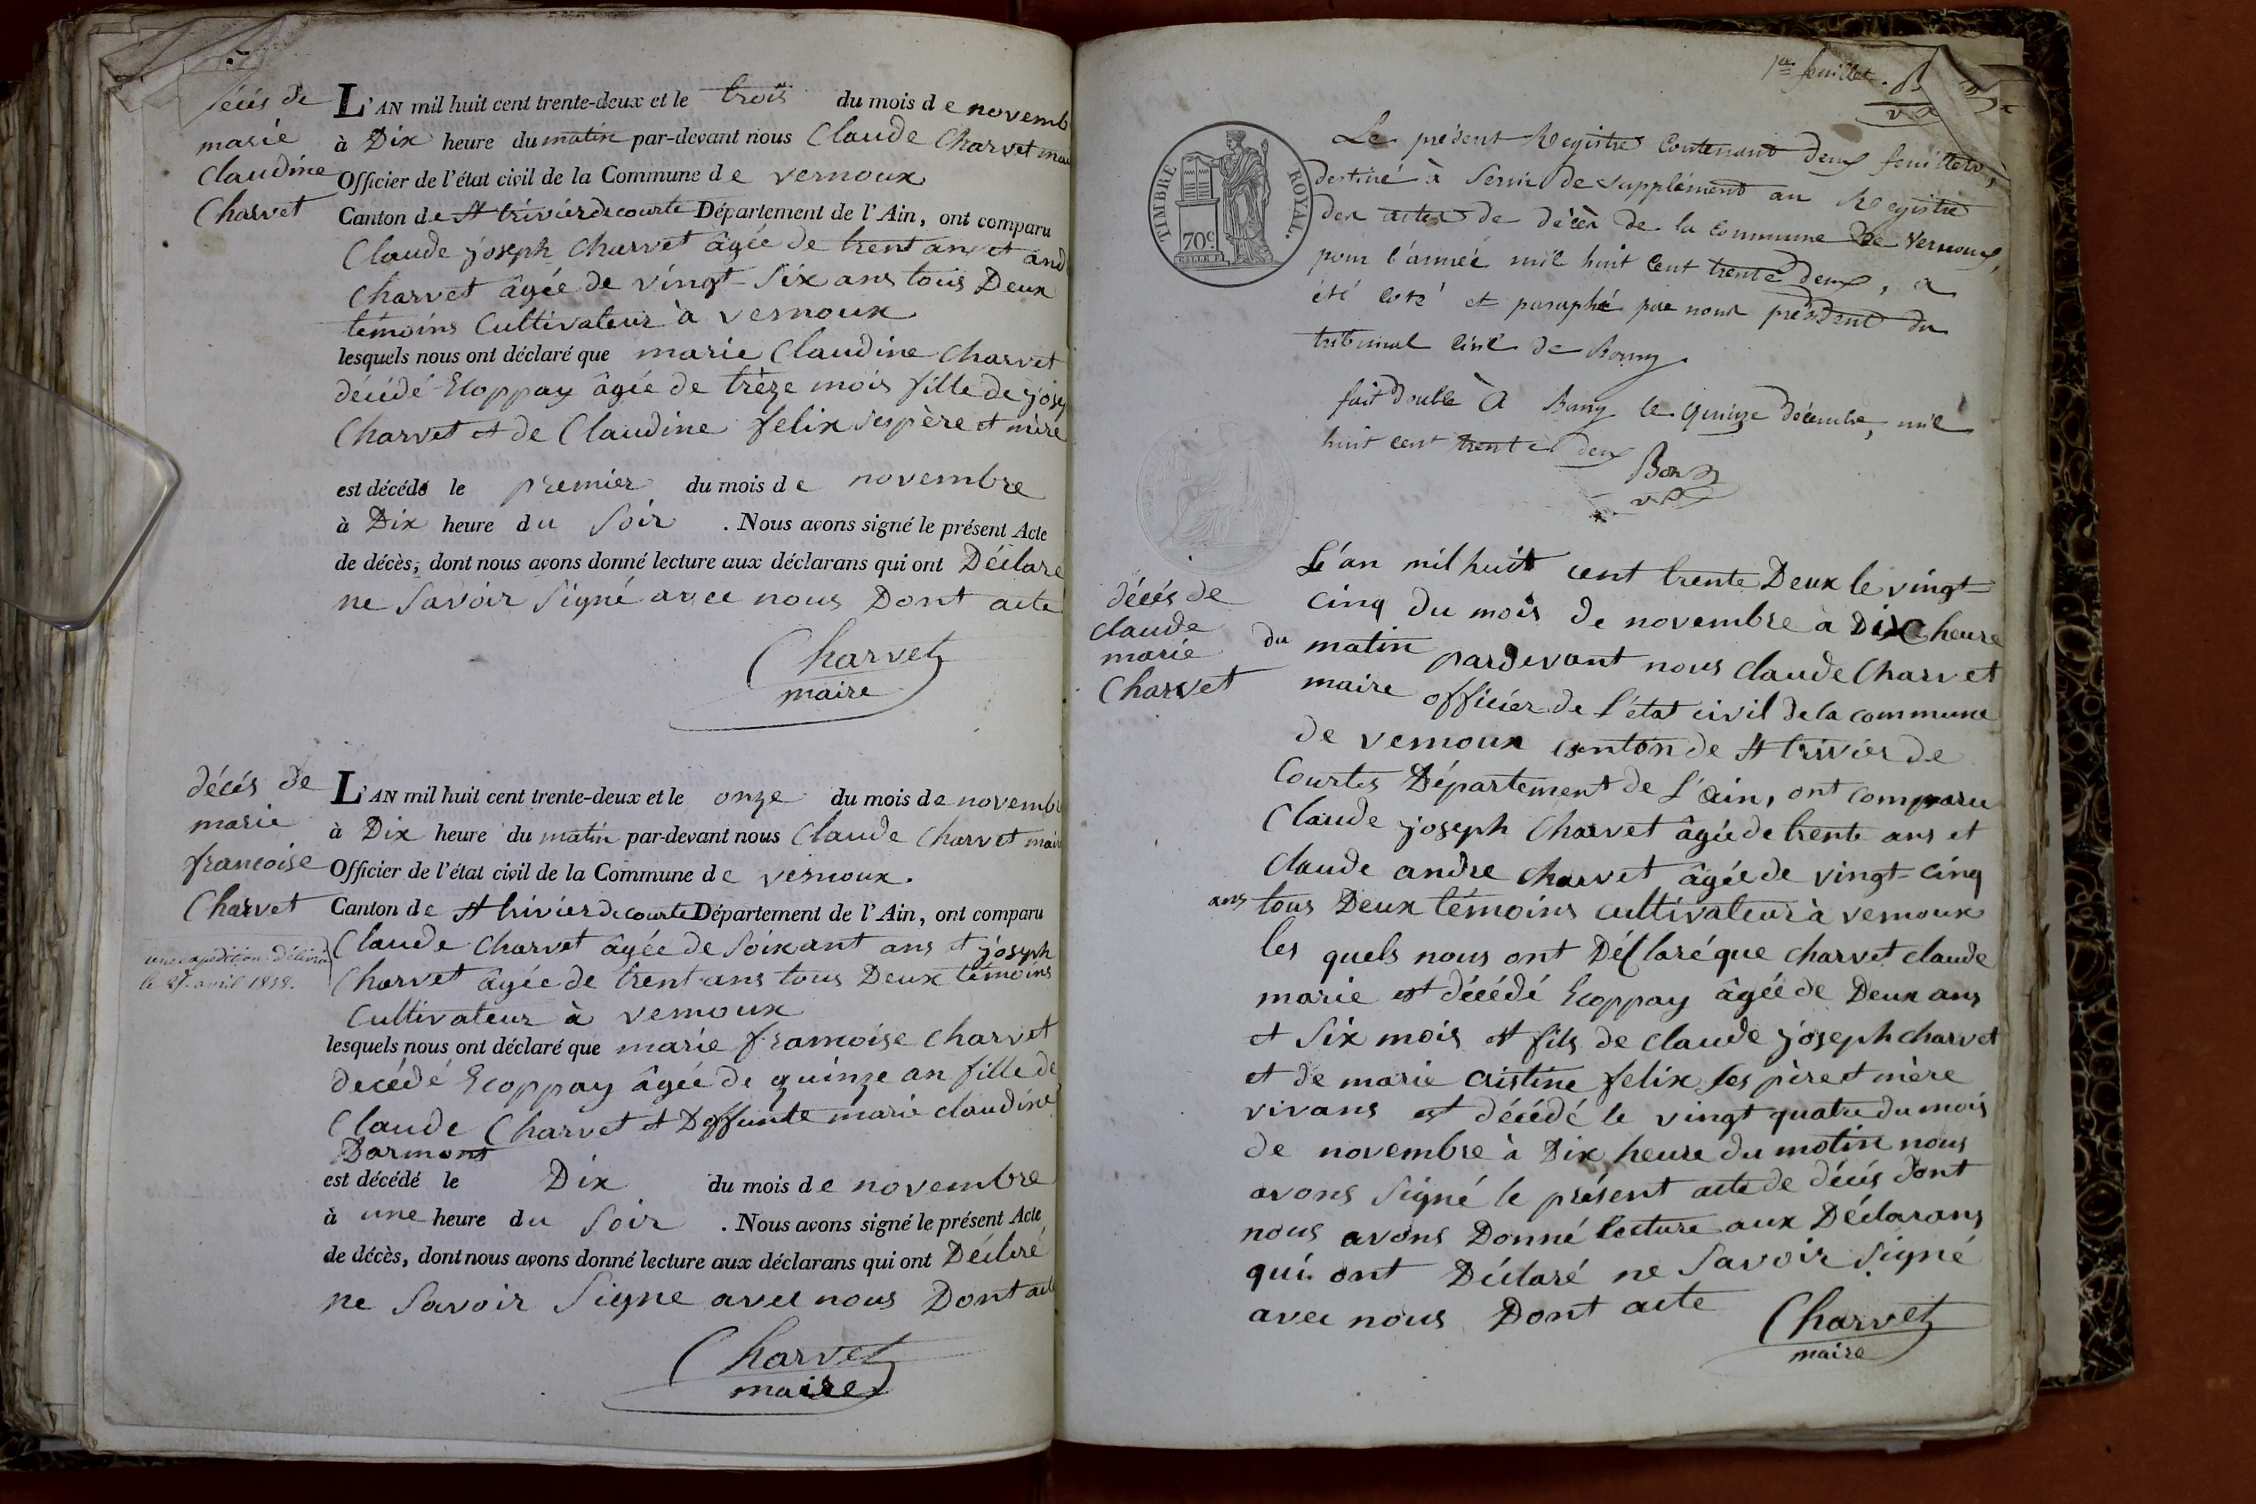 décès de
marie
Claudine
Charvet
L'AN mil huit cent trente-deux et le trois du mois de novemb
à Dix heure du matin par-devant nous Claude Charvet mai
Officier de l'état civil de la Commune de vernoux
Canton de St triviér de courte Département de l'Ain, ont comparu
Claude joseph Charvet âgée de trent ans et and
Charvet âgée de vingt-Six ans tous Deux
temoins Cultivateur à vernoux
lesquels nous ont déclaré que marie Claudine Charvet
décédé Ecoppay âgée de trèze mois fille de jose
Charvet et de Claudine felix ses père et mère
est décédé le premier du mois de novembre
à Dix heure du Soir . Nous avons signé le présent Acte
de décès, dont nous avons donné lecture aux déclarans qui ont Déclare
ne Savoir Signé avec nous Dont acte
Charvet
maire
décés de
marie
francoise
Charvet
une expédition délivrée
le 27 avril 1858.
L'AN mil huit cent trente-deux et le onze du mois de novemb
à Dix heure du matin par-devant nous Claude Charvet mair
Officier de l'état civil de la Commune de vernoux.
Canton de St trivier de courte Département de l'Ain, ont comparu
Claude Charvet âgée de Soixant ans et joseph
Charvet âgée de trent ans tous Deux temoins
Cultivateur à vernoux
lesquels nous ont déclaré que marie francoise Charvet
decédé Ecoppay âgée de quinze an fille de
Claude Charvet et Deffunte marie claudine
Darmont
est décédé le Dix du mois de novembre
à une heure du Soir . Nous avons signé le présent Acte
de décès, dont nous avons donné lecture aux déclarans qui ont Décleré
ne Savoir Signe avec nous Dont acte
Charvet
maire
1er feuillet.
TIMBRE ROYAL.
70c
Le présent Registre Contenant deux feuillets,
destiné à Servir de supplément au Registre
des actes de décès de la commune de Vernoux,
pour l'année mil huit Cent trente deux, a
été coté et paraphé par nous président du
tribunal civil de Bourg.
fait double à Bourg le quinze décembre, mil
huit cent trente deux
décés de
claude
marie
Charvet
L'an mil huit cent trente Deux le vingt-
cinq du mois de novembre à Dix heure
du matin pardevant nous Claude Charvet
maire officiér de l'état civil de la commune
de vernoux canton de St trivier de
Courtes Département de L'ain, ont comparu
Claude joseph Charvet âgée de trente ans et
claude andre charvet âgée de vingt-cinq
ans tous Deux témoins cultivateur à vernoux
les quels nous ont Déclaré que charvet claude
marie est décédé Ecoppay âgée de Deux ans
et Six mois et fils de claude joseph charvet
et de marie cristine felix ses père et mère
vivans est décédé le vingt quatre du mois
de novembre à Dix heure du matin nous
avons Signé le présent acte de décés dont
nous avons Donné lecture aux Déclarans
qui ont Déclaré ne Savoir Signé
avec nous Dont acte
Charvet
maire